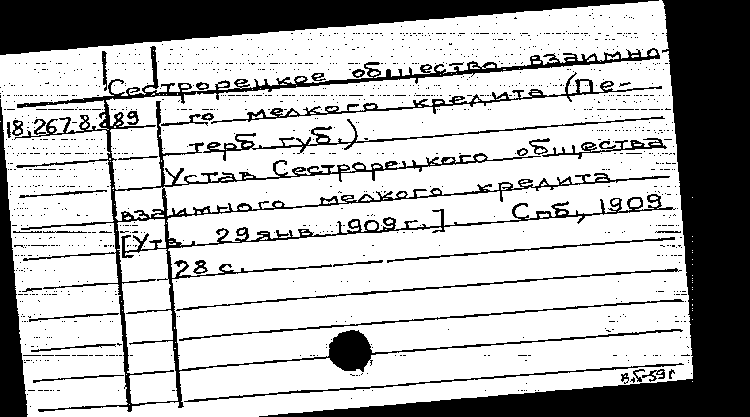 Сестрорецкое общество взаимно-
18.267.8.289 го мелкого кредита (Пе-
терб. губ.).
Устав Сестрорецкого общества
взаимного мелкого кредита
[Утв. 29 янв. 1909 г.]. Спб, 1909
28 с.